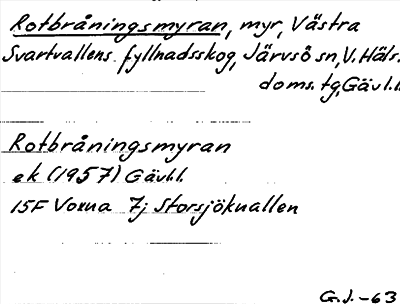 Rotbråningsmyran, myr, Västra
Svartvallens fyllnadsskog, Järvsö sn, V. Häls.
doms. tg, Gävl.l.
Rotbråningsmyran
ek (1957) Gävl.l.
15F Voxna 7j Storsjökvallen
G.J. -63